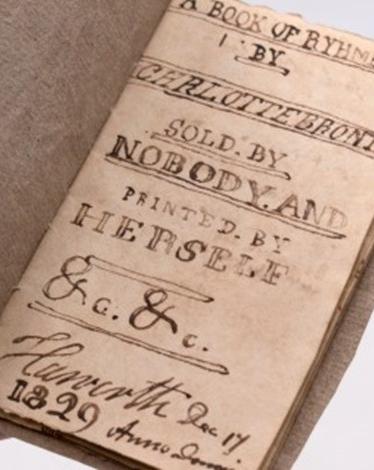 A BOOK OF RYHM
BY
CHARLOTTE BRONT
SOLD. BY
NOBODY. AND
PRINTED. BY
HERSELF
&c. &c.
Haworth Dec 17
1829 Anno Domi